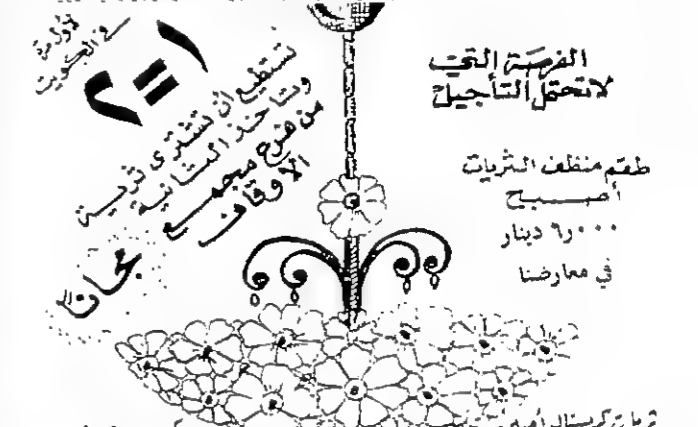 الفرصة التي
لا تحتمل التأجيل
طقم منظف الثريات
أصبح
٩٫٠٠٠ دينار
في معارضنا
لأول مرة
في الكويت
١ = ٢
تستطيع ان تشترى ثرية
وتأخذ الثانية
من فرع مجمع
الاوقاف
مجاناً
ثريات كريستال